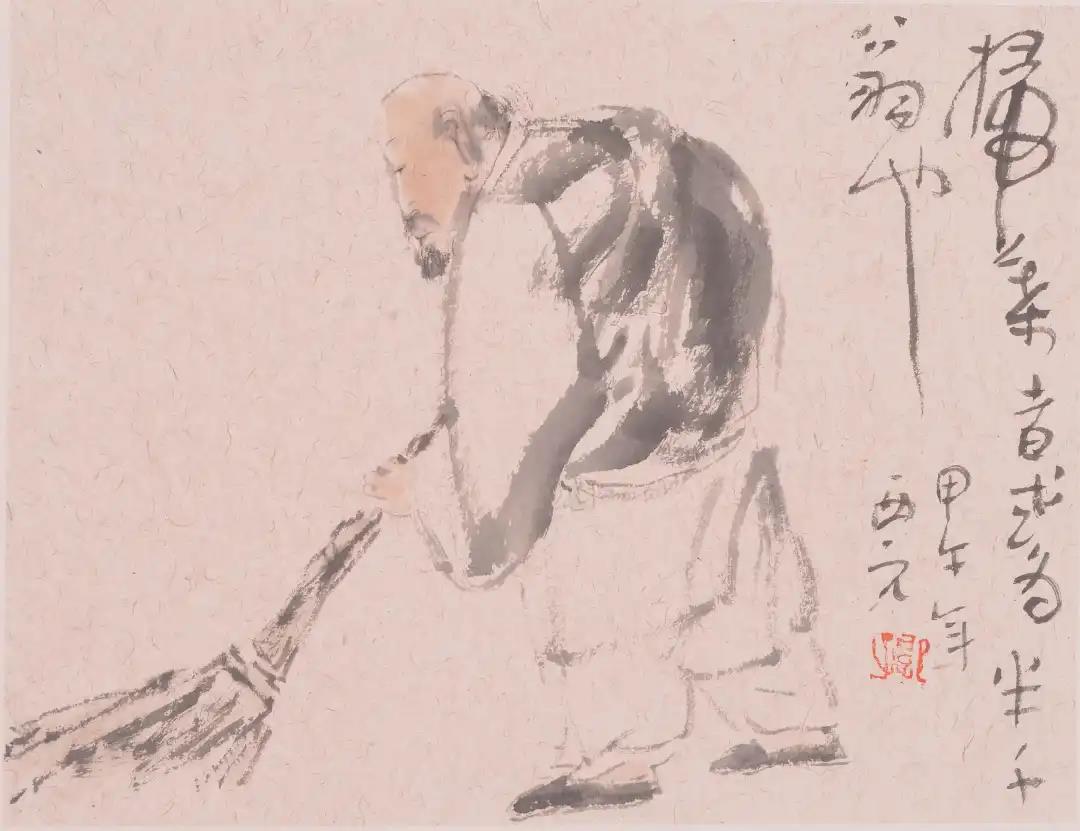 掃葉者或為半千
翁也
甲午年
西元